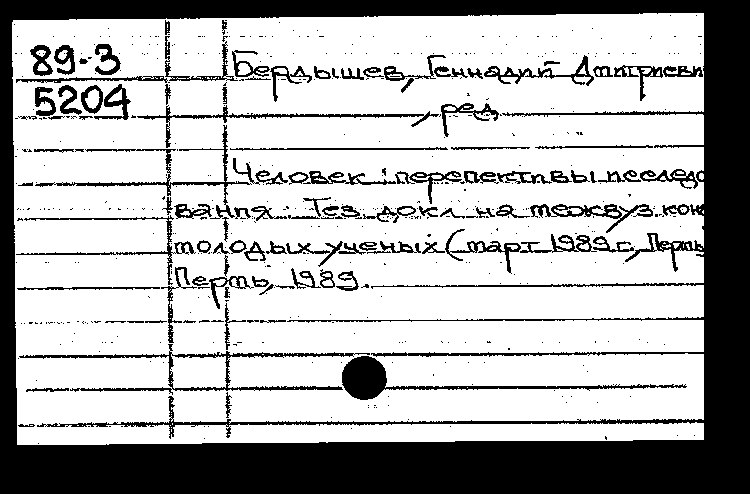 89-3 Бердышев, Геннадий Дмитриеви
5204 , ред
Человек : перспективы исследо
вания. Тез докл на межвуз. кон
молодых ученых (март 1989 г., Пермь
Пермь, 1989.